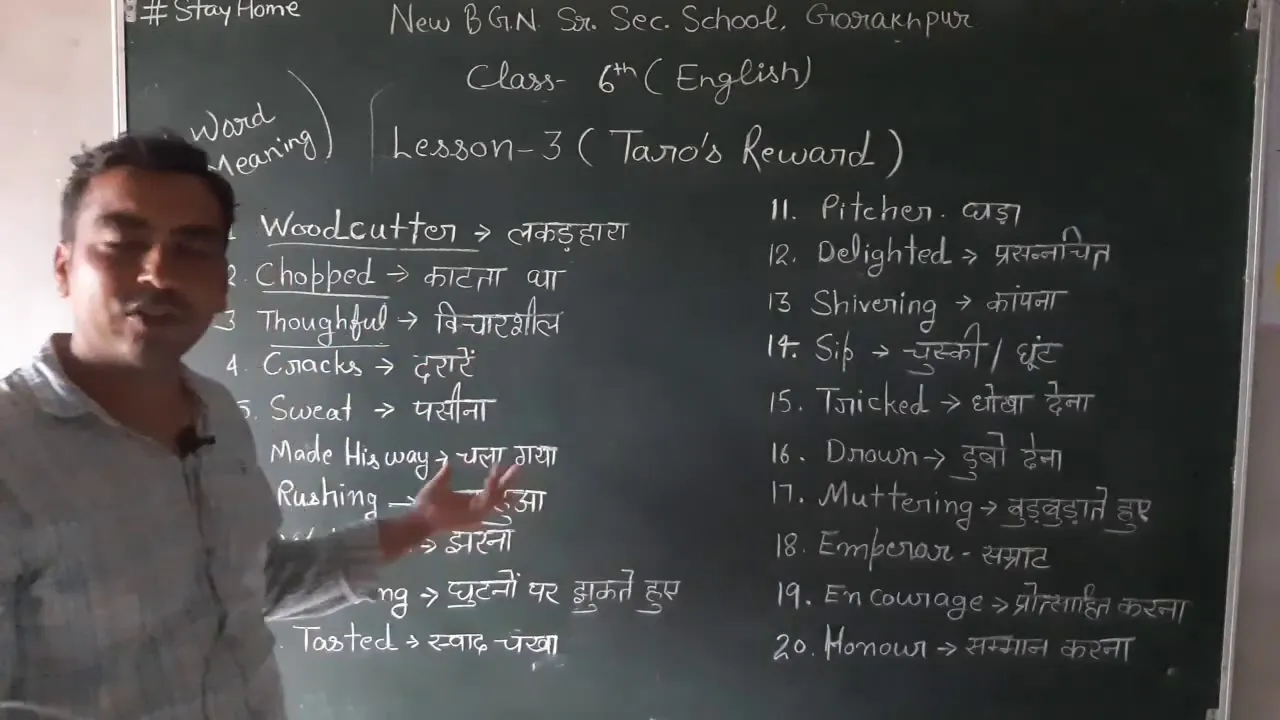 # Stay Home
New B G.N. Sr. Sec. School, Gorakhpur
Class- 6th ( English)
Word Meaning)
Lesson-3 ( Taro's Reward )
1 Woodcutter → लकड़हारा
2. Chopped → काटता था
3 Thoughful → विचारशील
4. Cracks → दरारें
5. Sweat → पसीना
Made His way → चला गया
Rushing → हुआ
→ झरना
ng → घुटनों पर झुकते हुए
. Tasted → स्वाद चखा
11. Pitcher. घड़ा
12. Delighted → प्रसन्नचित
13 Shivering → कांपना
14. Sip → चुस्की / घूंट
15. Tricked → धोखा देना
16. Drown → डुबो देना
17. Muttering → बुड़बुड़ाते हुए
18. Emperor - सम्राट
19. Encourage → प्रोत्साहित करना
20. Honour → सम्मान करना